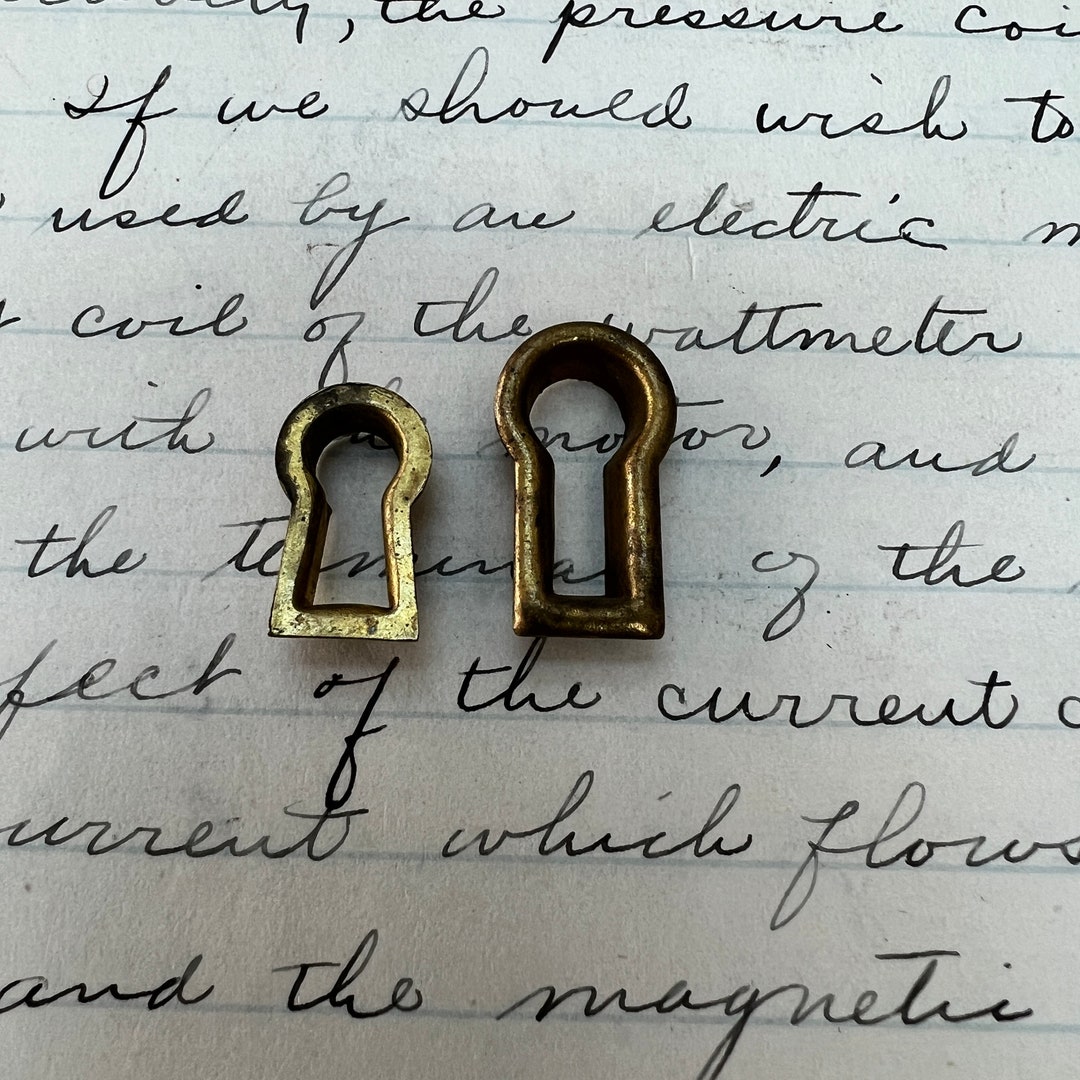 the pressure coi
If we should wish to
used by an electric m
coil of the wattmeter
with motor, and
the terminal of the
fect of the current c
urrent which flows
and the magnetic